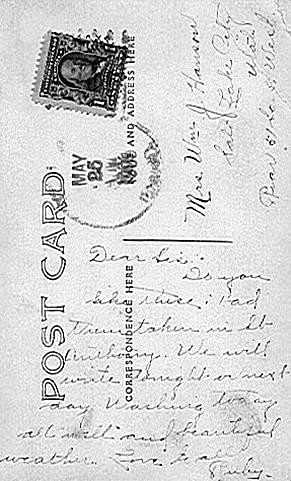 POST CARD
CORRESPONDENCE HERE
AND ADDRESS HERE
MAY
25
1909
Mrs Wm J Hanson
Salt Lake City
Utah
Rear 61 So 5 West
Dear Sis:
Do you
like these: Had
them taken in St
Anthony. We will
write tonight or next
day. Washing today
all well and beautiful
weather. Love to all
Ruby.